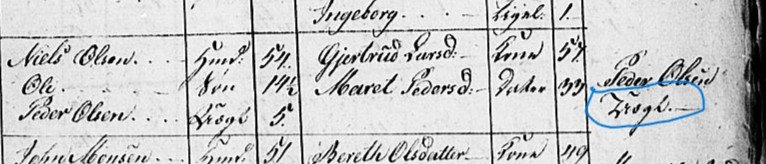 Ingeborg. . . Ligel. 1.
Niels Olsen. . Huusb: 54. Gjertrud Larsd:- Kone 57.
Ole. . . . Søn 14½ Maret Pedersd:- Datter 33 Peder Olsen
Peder Olsen. . . . Lægd 5. Lægd.-
John Monsen. . . Huusb: 51 Bereth Olsdatter - Kone 49